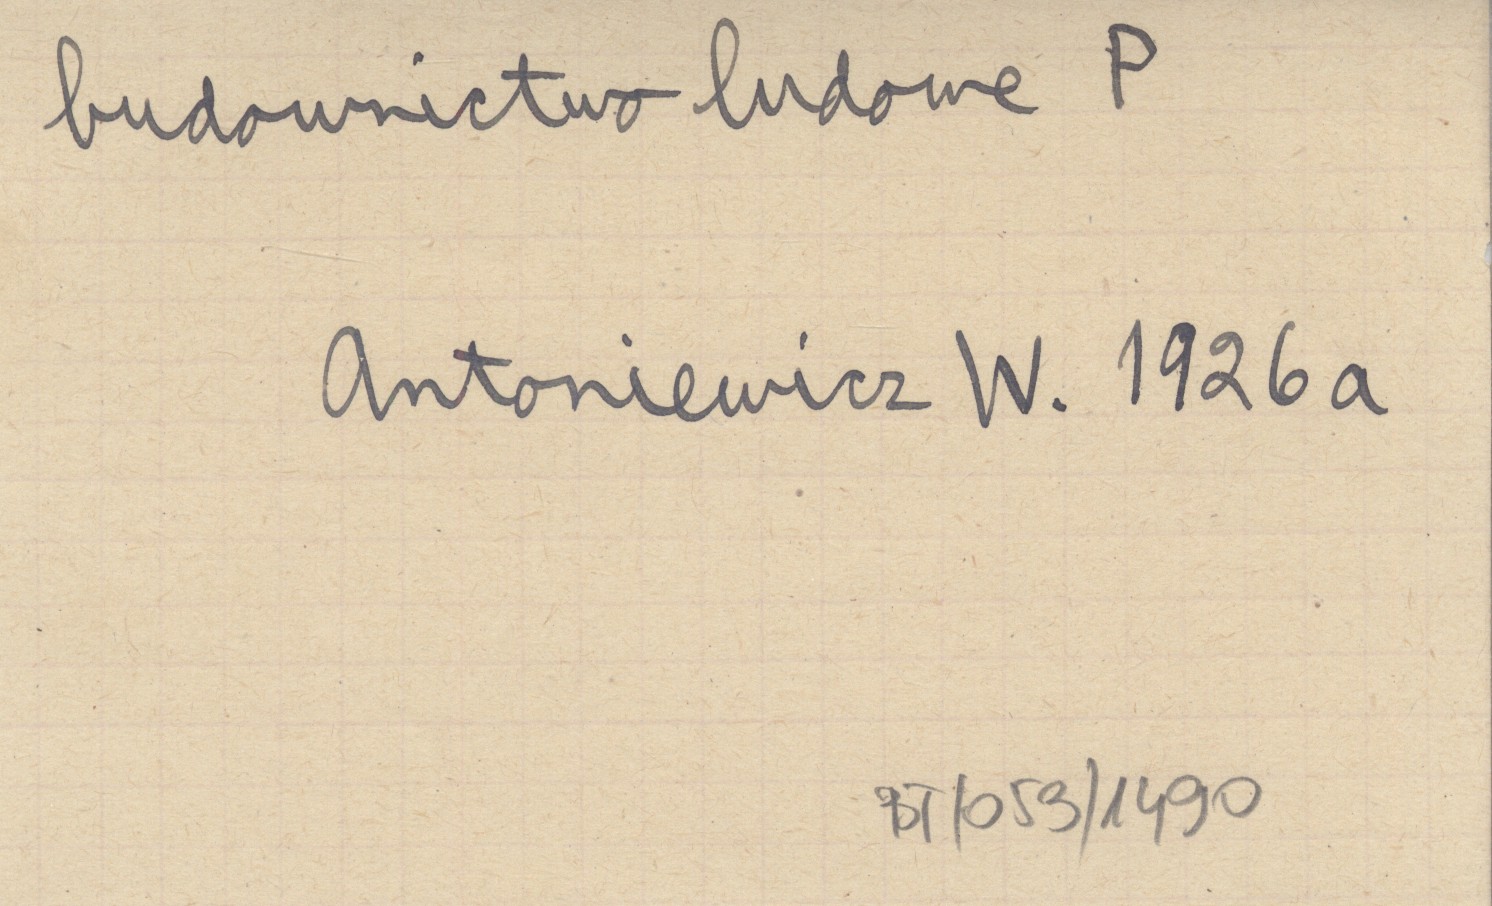 budownictwo ludowe P
Antoniewicz W. 1926a
BT/053/1490